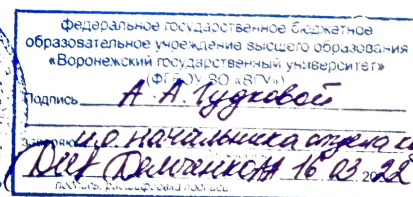 федеральное государственное бюджетное
образовательное учреждение высшего образования
«Воронежский государственный университет»
(ФГБОУ ВО «ВГУ»)
Подпись А. А. Гудковой
заверяю и.о. начальника отдела
Демченко 16 03 2022
подпись, расшифровка подписи